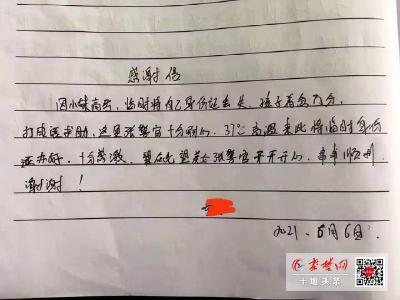 感谢信
因小妹高考,临时将自己身份证丢失,孩子着急万分,
打电话求助,这里张警官十分耐心,37℃高温来此将临时身份
证办好,十分感激,望在此望各位张警官开开心心,事事顺利。
谢谢!
2021.6月6日.
秦楚网
十堰头条